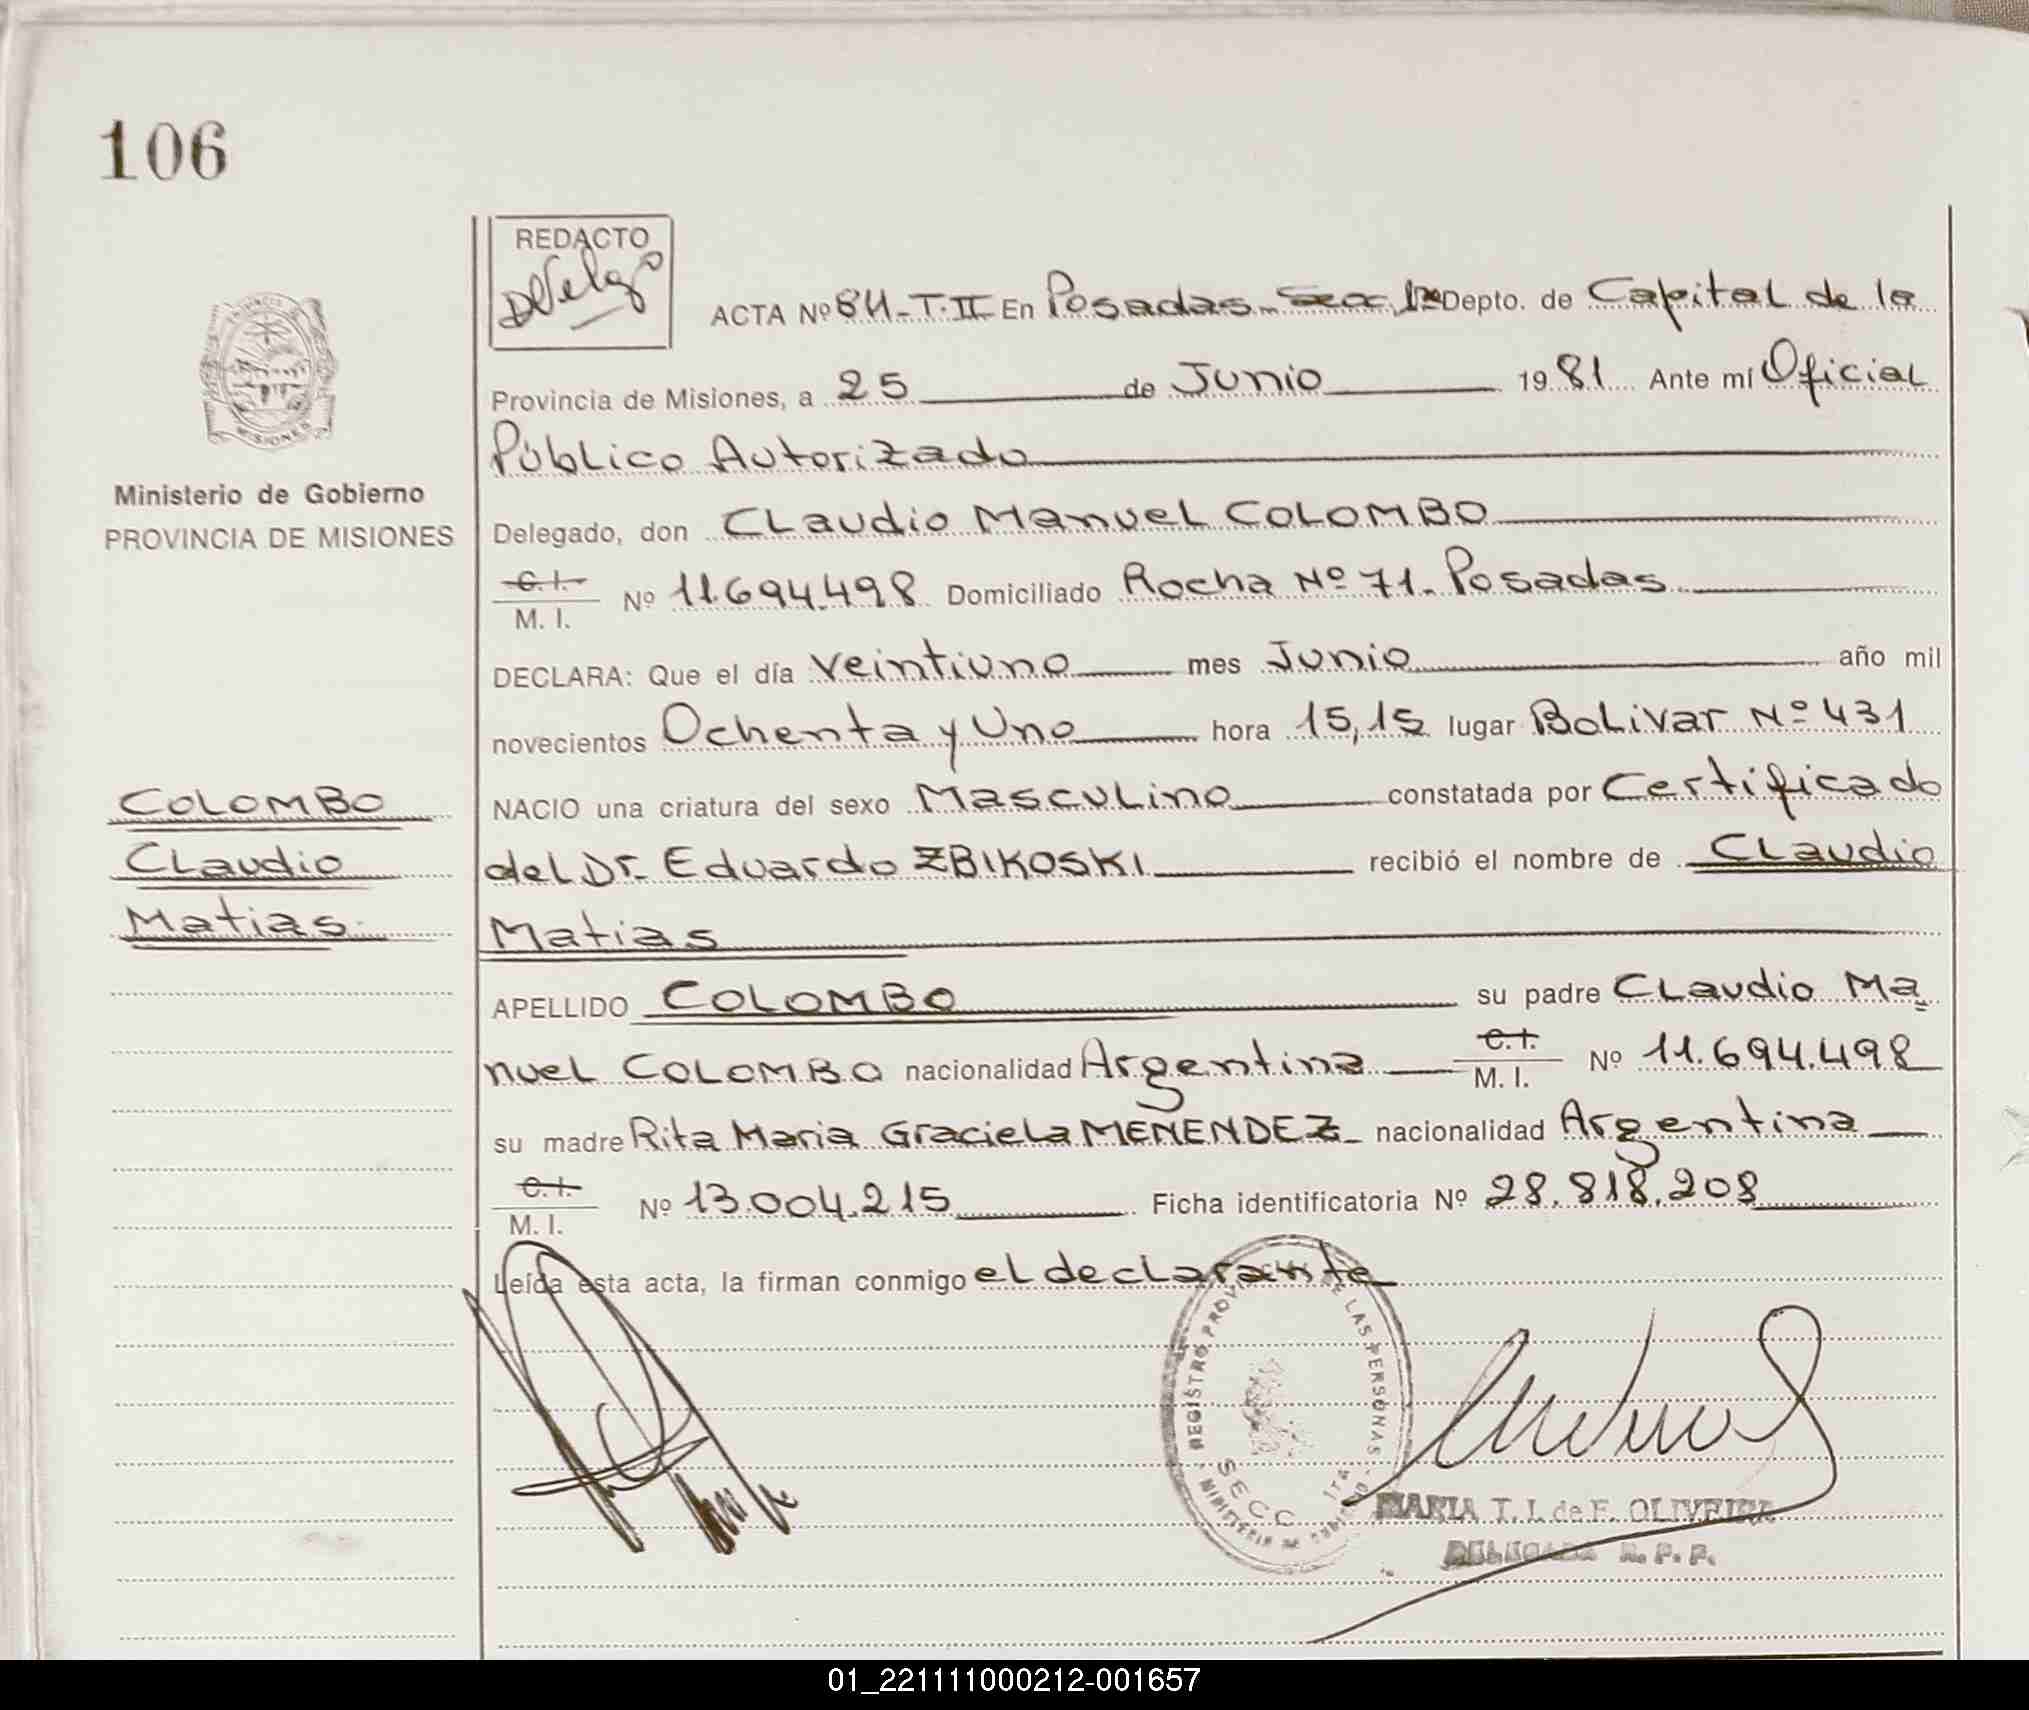 106
REDACTO
ACTA Nº 84-T.II En Posadas-Sec. 1ra Depto. de Capital de la
Provincia de Misiones, a 25 de Junio 1981 Ante mí Oficial
Público Autorizado
Ministerio de Gobierno
PROVINCIA DE MISIONES
Delegado, don Claudio Manuel COLOMBO
C.I. M.I. Nº 11.694.498 Domiciliado Rocha Nº 71. Posadas
DECLARA: Que el día veintiuno mes Junio año mil
novecientos Ochenta y Uno hora 15,15 lugar Bolivar Nº 431
COLOMBO
Claudio
Matias
NACIO una criatura del sexo Masculino constatada por Certificado
del Dr. Eduardo ZBIKOSKI recibió el nombre de Claudio
Matias
APELLIDO COLOMBO su padre Claudio Ma
nuel COLOMBO nacionalidad Argentina C.I. M.I. Nº 11.694.498
su madre Rita Maria Graciela MENENDEZ nacionalidad Argentina
C.I. M.I. Nº 13.004.215 Ficha identificatoria Nº 28.818.208
Leída esta acta, la firman conmigo el declarante
REGISTRO PROV DE LAS PERSONAS
SECC 1ra
MINISTERIO DE GOBIERNO
MARIA T. I. de F. OLIVEIRA
DELEGADA R. P. P.
01_221111000212-001657